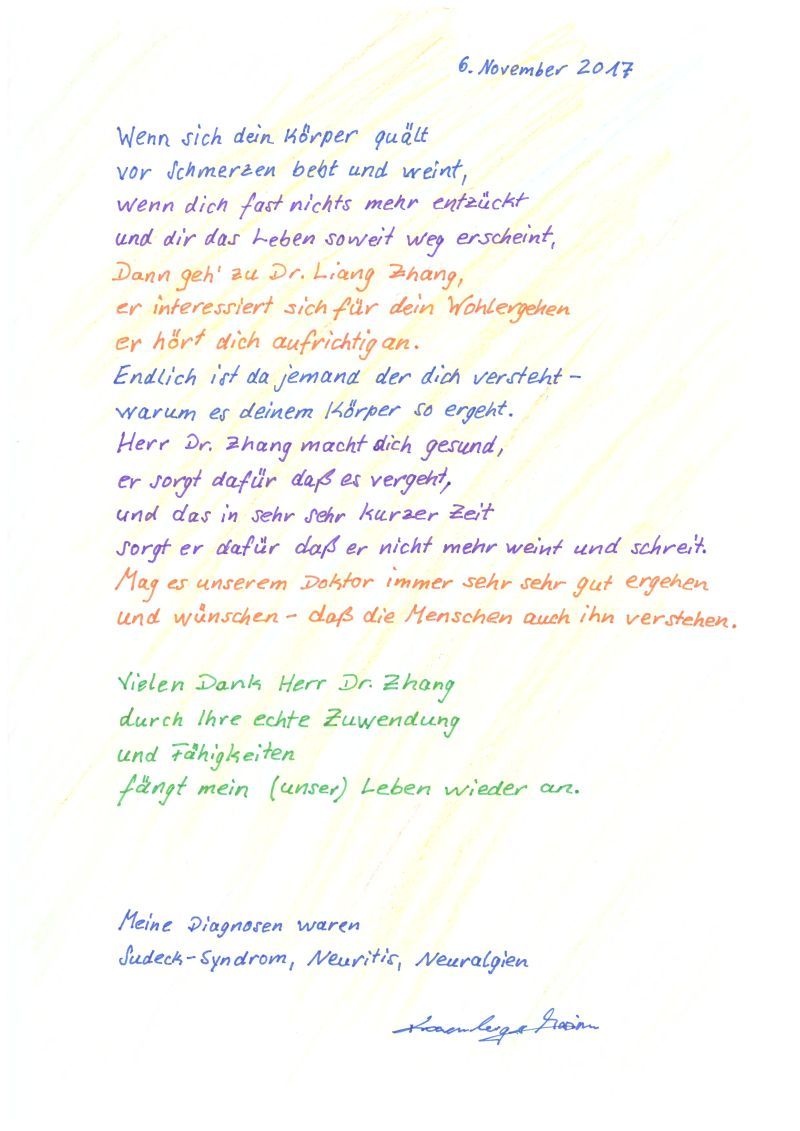 6. November 2017
Wenn sich dein Körper quält
vor Schmerzen bebt und weint,
wenn dich fast nichts mehr entzückt
und dir das Leben soweit weg erscheint,
Dann geh' zu Dr. Liang Zhang,
er interessiert sich für dein Wohlergehen
er hört dich aufrichtig an.
Endlich ist da jemand der dich versteht –
warum es deinem Körper so ergeht.
Herr Dr. Zhang macht dich gesund,
er sorgt dafür daß es vergeht,
und das in sehr sehr kurzer Zeit
sorgt er dafür daß er nicht mehr weint und schreit.
Mag es unserem Doktor immer sehr sehr gut ergehen
und wünschen – daß die Menschen auch ihn verstehen.
Vielen Dank Herr Dr. Zhang
durch Ihre echte Zuwendung
und Fähigkeiten
fängt mein (unser) Leben wieder an.
Meine Diagnosen waren
Sudeck-Syndrom, Neuritis, Neuralgien